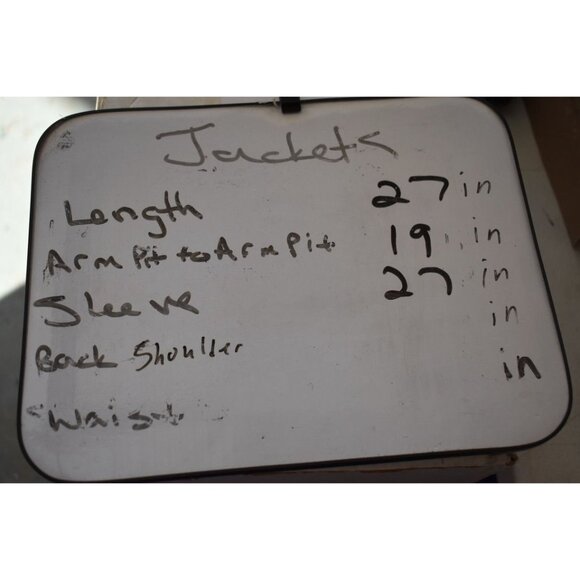 Jackets
Length 27 in
Arm Pit to Arm Pit 19 in
Sleeve 27 in
Back Shoulder in
Waist in